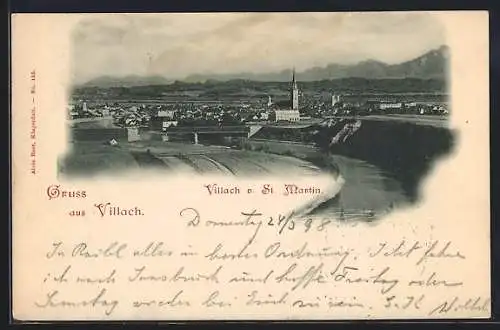 Alois Beer, Klagenfurt. — No. 115.
Gruss
aus Villach.
Villach v. St. Martin.
Donnerstag 24/3 98
In Raibl alles in bester Ordnung. Jetzt fahre
ich nach Innsbruck und hoffe Freitag oder
Samstag wieder bei Euch zu sein.